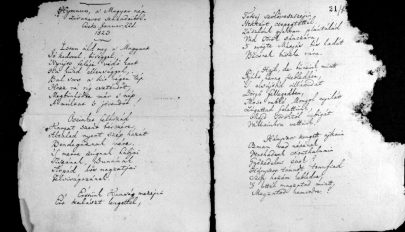 Hymnus, a' Magyar nép
zivataros századaiból.
Cseke Januar. 22d.
1823
Isten áldd meg a' Magyart
Jó kedvvel, bőséggel,
Nyújts feléje védő kart
Ha küzd ellenséggel,
Bal sors a' kit régen tép
Hozz rá víg esztendőt
Megbünhödte már e' nép
A' multat 's jövendőt
Őseinket felhozád
Kárpát szent bérczére,
Általad nyert szép hazát
Bendegúznak vére,
'S merre zúgnak habjai
Tiszának, Dunának
Árpád hős magzatjai
Felvirágozának.
Értünk Kunság mezein
Ért kalászt lengettél,
21/
Tokaj szőlővesszein
Nektárt csepegtettél.
Zászlónk gyakran plántálád
Vad török sáncára
'S nyögte Mátyás bús hadát
Bécsnek büszke vára.
Hajh de bűneink miatt
Gyúlt harag kebledben,
'S elsujtád villámidat
Dörgő fellegedben,
Most rabló Mongol nyilát
Zúgattad felettünk,
Majd töröktől
Vállainkra vettünk
Hányszor zengett ajkain
Ozman vad népének
Vert hadunk csonthalmain
Győzedelmi ének!
Hányszor támadt tenfiad
Szép hazám kebledre,
'S lettél magzatod miatt
Magzatod hamvvedre!